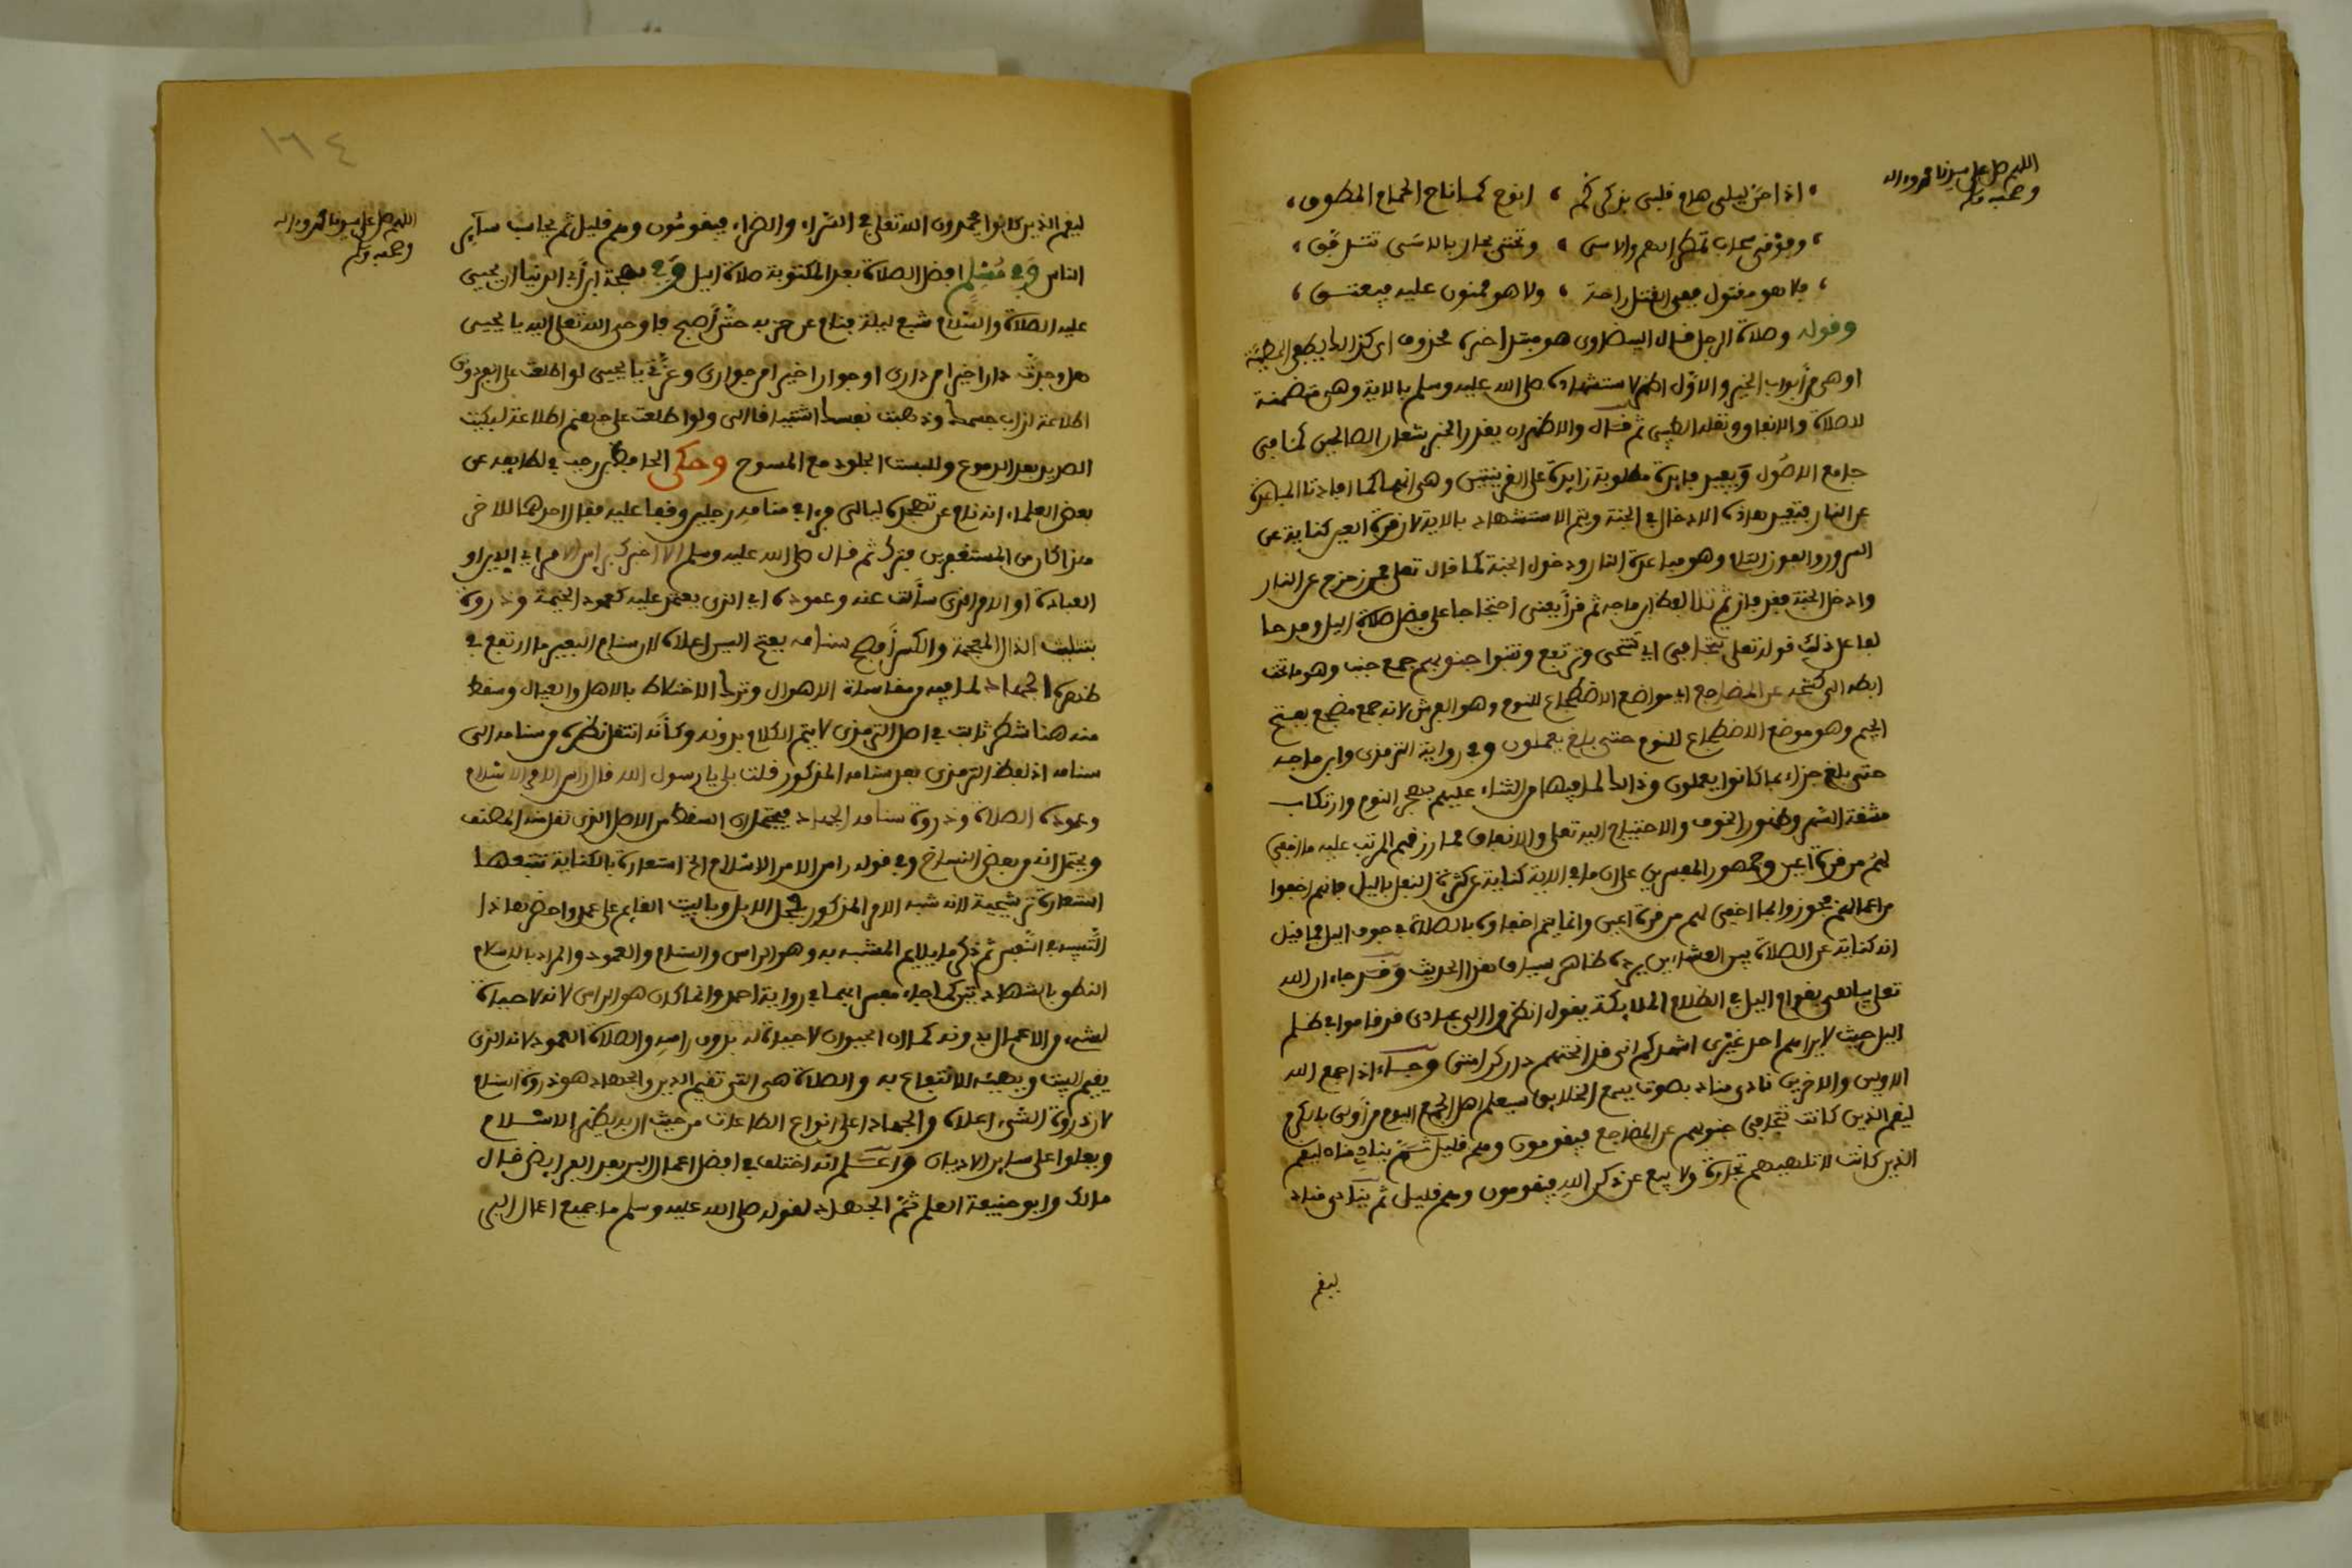 اللهم صل على سيدنا محمد واله
وصحبه وسلم
اذا جن ليلى هام قلبى بذكركم ، انوح كما ناح الحمام المطوق ،
، وفوقى سحاب تمطر الهم والاسى ، وتحتى بحار بالاسى تتدفق ،
، فلا هو مقتول ففى القتل راحة ، ولا هو ممنون عليه فيعتق ،
وقوله وصلاة الرجل قال البيضاوى هو مبتدا خبره محذوف اى كذلك يطفى الخطيئة
او هى من أبواب الخير والاول اظهر لاستشهاده صلى الله عليه وسلم بالاية وهى متضمنة
للصلاة والانفاق ونقله الطيبى ثم قال والاظهر ان يقدر الخبر شعار الصالحين كما فى
جامع الاصول ويفيد فايدة مطلوبة زايدة على القرينتين وهى انهما كما افادتا المباعدة
عن النار فتفيد هذه الادخال فى الجنة ويتم الاستشهاد بالاية لان قرة العين كناية عن
السرور والفوز التام وهو مباعدة النار ودخول الجنة كما قال تعلى فمن زحزح عن النار
وادخل الجنة فقد فاز ثم تلا لفظ ابن ماجه ثم قرأ يعنى احتجاجا على فضل صلاة اليل ومدحا
لها على ذلك قوله تعلى تتجافى اى تتنحى وترتفع وتنبوا جنوبهم جمع جنب وهو ما تحت
ابطه الى كشحه عن المضاجع اى مواضع الاضطجاع للنوم وهو الفرش لانه جمع مضجع بفتح
الجيم وهو موضع الاضطجاع للنوم حتى بلغ يعملون وفى رواية الترمذى وابن ماجه
حتى بلغ جزاء بما كانوا يعملون وذالك لما فيها من الثناء عليهم بهجر النوم وارتكاب
مشقة السهر وظهور الخوف والاحتياج اليه تعلى والانفاق مما رزقهم المرتب عليه ما اخفى
لهم من قرة اعين وجمهور المفسرين على ان ما فى الاية كناية عن كثرة النفل باليل فانهم اخفوا
من اعمالهم فجوزوا بما اخفى لهم من قرة اعين وانما يتم اخفاؤه بالصلاة فى جوف اليل فما قيل
انه كناية عن الصلاة بين العشاءين يرده ظاهر سياق هذا الحديث وقد جاء ان الله
تعلى يباهى بقوام اليل فى الظلام الملايكة يقول انظروا الى عبادى قد قاموا فى ظلم
اليل حيث لا يراهم احد غيرى اشهدكم انى قد ابحتهم دار كرامتى وجاء اذا جمع الله
الاولين والاخرين نادى مناد بصوت يسمع الخلايق سيعلم اهل الجمع اليوم من أولى بالكرم
ليقم الذين كانت تتجافى جنوبهم عن المضاجع فيقومون وهم قليل ثم يناد مناد ليقم
الذين كانت لا تلهيهم تجارة ولا بيع عن ذكر الله فيقومون وهم قليل ثم ينادى مناد
ليقم
١٦٤
اللهم صل على سيدنا محمد واله
وصحبه وسلم
ليقم الذين كانوا يحمدون الله تعلى فى السراء والضراء فيقومون وهم قليل ثم يحاسب ساير
الناس وفى مسلم افضل الصلاة بعد المكتوبة صلاة اليل وفى بهجة ابن أبى الدنيا ان يحيى
عليه الصلاة والسلام شبع ليلة فنام عن حزبه حتى أصبح فاوحى الله تعلى اليه يا يحيى
هل وجدت دارا خيرا من دارى او جوارا خيرا من جوارى وعزتى يا يحيى لو اطلعت على الفردوس
اطلاعة لذاب جسمك وذهبت نفسك اشتياقا الى ولو اطلعت على جهنم اطلاعة لبكيت
الصديد بعد الدموع وللبست الجلود مع المسوح وحكى الحافظ ابن رجب فى لطايفه عن
بعض العلماء انه نام عن تهجده ليالى فرءا فى منامه رجلين وقفا عليه فقال احدهما للاخر
هذا كان من المستغفرين فترك ثم قال صلى الله عليه وسلم الا اخبرك براس الامر اى الدين او
العبادة او الامر الذى سألت عنه وعموده اى الذى يعتمد عليه كعمود الخيمة وذروة
بتثليث الذال المعجمة والكسر أفصح سنامه بفتح السين اعلاه لان سنام البعير ما ارتفع فى
ظهره الجهاد لما فيه من مقاساة الاهوال وترك الاختلاط بالاهل والعيال وسقط
منه هنا شطر ثابت فى اصل الترمذى لا يتم الكلام بدونه وكأنه انتقل نظره من سنامه الى
سنامه اذ لفظ الترمذى بعد سنامه المذكور قلت بلى يا رسول الله قال راس الامر الاسلام
وعموده الصلاة وذروة سنامه الجهاد فيحتمل ان السقط من الاصل الذى نقل منه المصنف
ويحتمل انه من بعض النساخ وفى قوله راس الامر الاسلام الخ استعارة بالكناية تتبعها
استعارة ترشيحية لانه شبه الامر المذكور بفحل الابل وبالبيت القايم على عمد واضمر هذا
التشبيه فى النفس ثم ذكر ما يلايم المشبه به وهو الراس والسنام والعمود والمراد بالاسلام
النطق بالشهادتين كما جاء مفسرا بهما فى رواية احمد وانما كان هو الراس لانه لا حياة
لشىء من الاعمال بدونه كما ان الحيوان لا حياة له بدون راسه والصلاة العمود لانه الذى
يقيم البيت ويهيئه للانتفاع به والصلاة هى التى تقيم الدين والجهاد هو ذروة السنام
لان ذروة الشىء اعلاه والجهاد اعلى انواع الطاعات من حيث ان به يظهر الاسلام
ويعلوا على ساير الاديان واعلم انه اختلف فى افضل اعمال البر بعد الفرايض قال
مالك وابو حنيفة العلم ثم الجهاد لقوله صلى الله عليه وسلم ما جميع اعمال البر